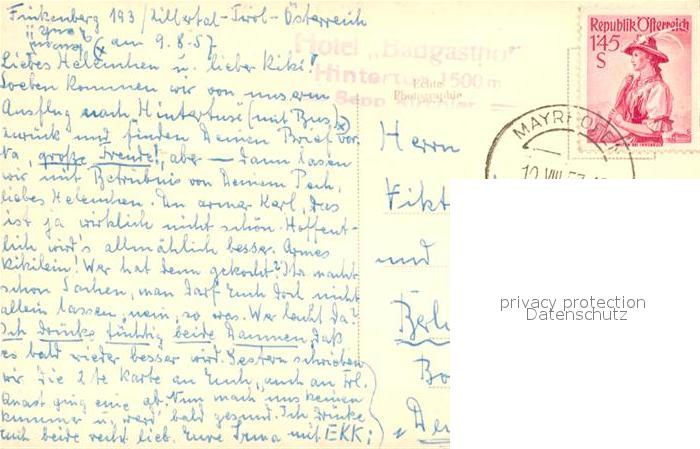 Finkenberg 193/Zillertal-Tirol-Österreich
am 9.8.57
Liebes Helenchen u. lieber Kiki!
Soeben kommen wir von unserm
Ausflug nach Hintertux (mit Bus)
zurück und finden Deinen Brief vor.
Na, große Freude!, aber — dann lasen
wir mit Betrübnis von Deinem Pech,
liebes Helenchen. Du armer Kerl, das
ist ja wirklich nicht schön. Hoffent-
lich wird's allmählich besser. Armes
Kikilein! Wer hat denn gekocht? Ihr macht
schon Sachen, man darf Euch doch nicht
allein lassen, nein, so was. Wer lacht da?
Ich drücke tüchtig beide Daumen, daß
es bald wieder besser wird. Gestern schrieben
wir die 2te Karte an Euch, auch an Frl.
ging eine ab. Nun mach uns keinen
Kummer u. werd' bald gesund. Ich drücke
Euch beide recht lieb. Eure Irma mit EKK;
Hotel „Badgasthof"
Hintertux 1500 m
Sepp
Echte
Photographie
Republik Österreich
1.45
S
MAYRHOFEN
10.VIII.57
Herrn
Vikt
und
Berl
Bo
„De
privacy protection
Datenschutz